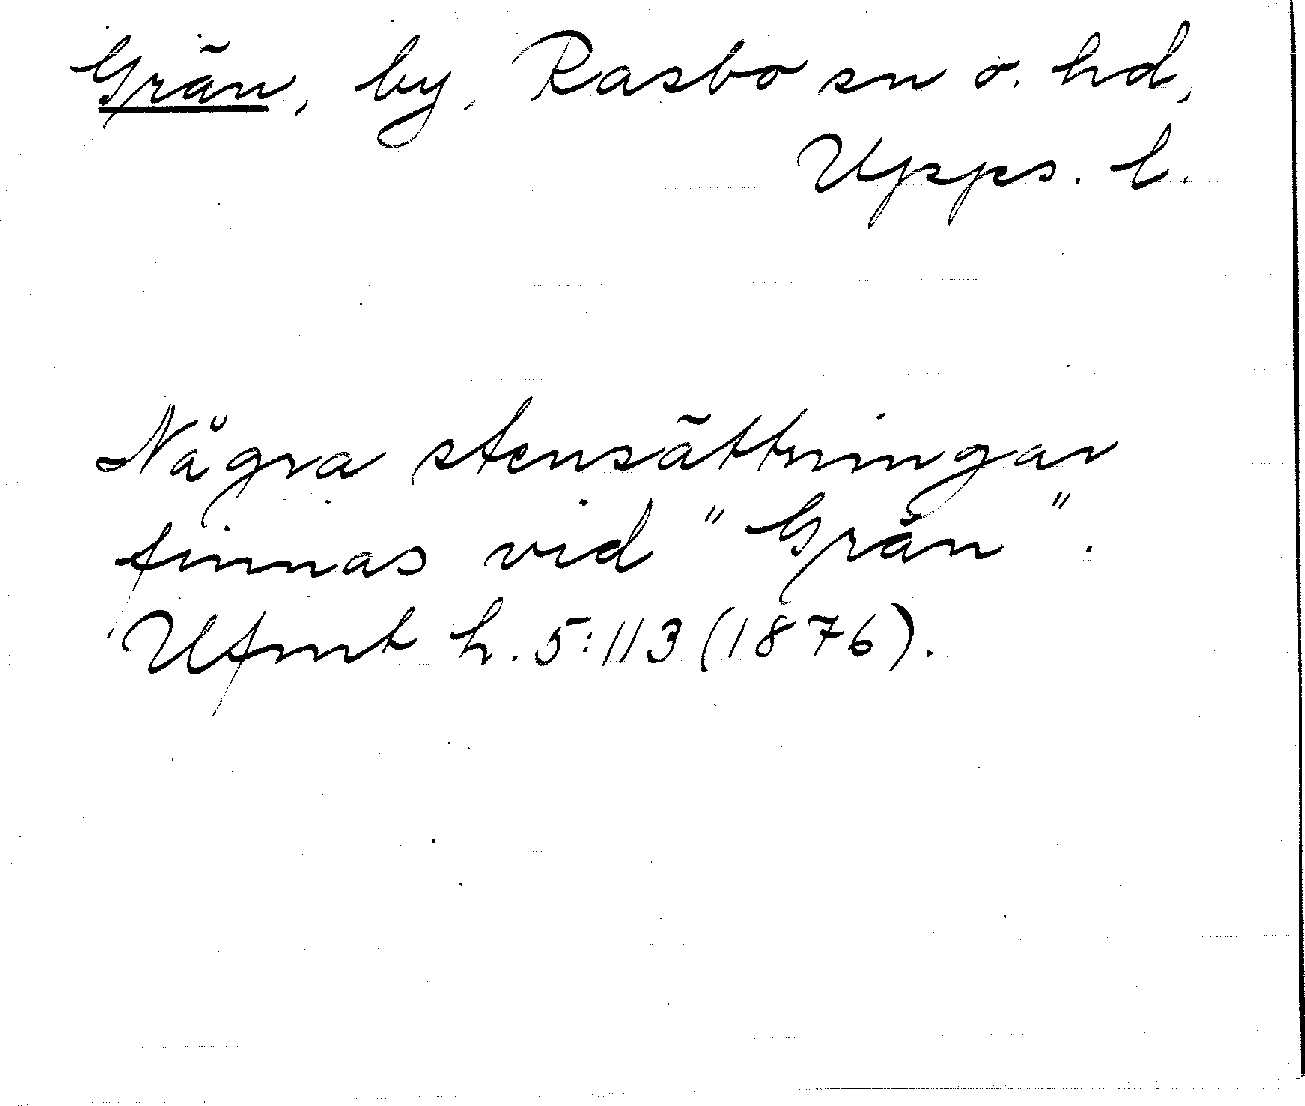 Grän, by, Rasbo sn o. hd,
Upps. l.
Några stensättningar
finnas vid "Grän".
Ufmt h. 5:113 (1876).